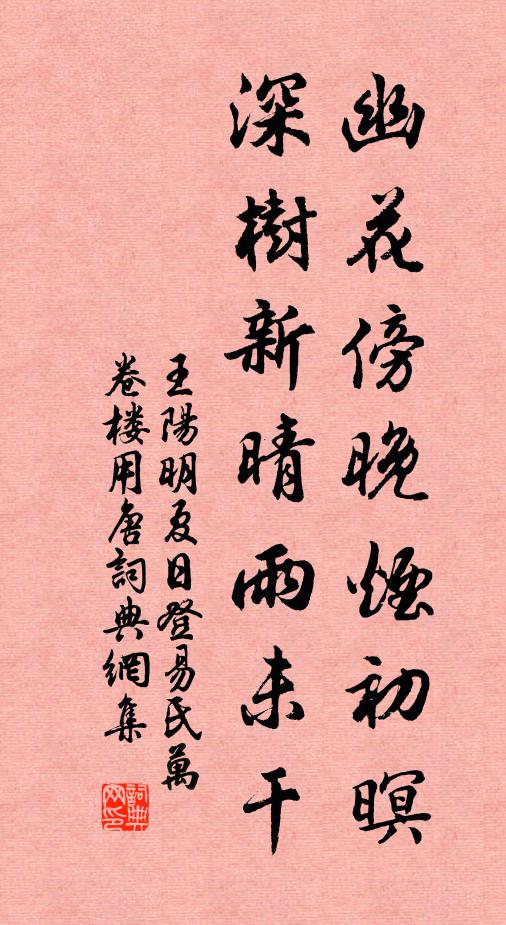 幽花傍晚煙初暝
深樹新晴雨未干
王陽明夏日登易氏萬
卷楼用唐詞典網集
詞典网印